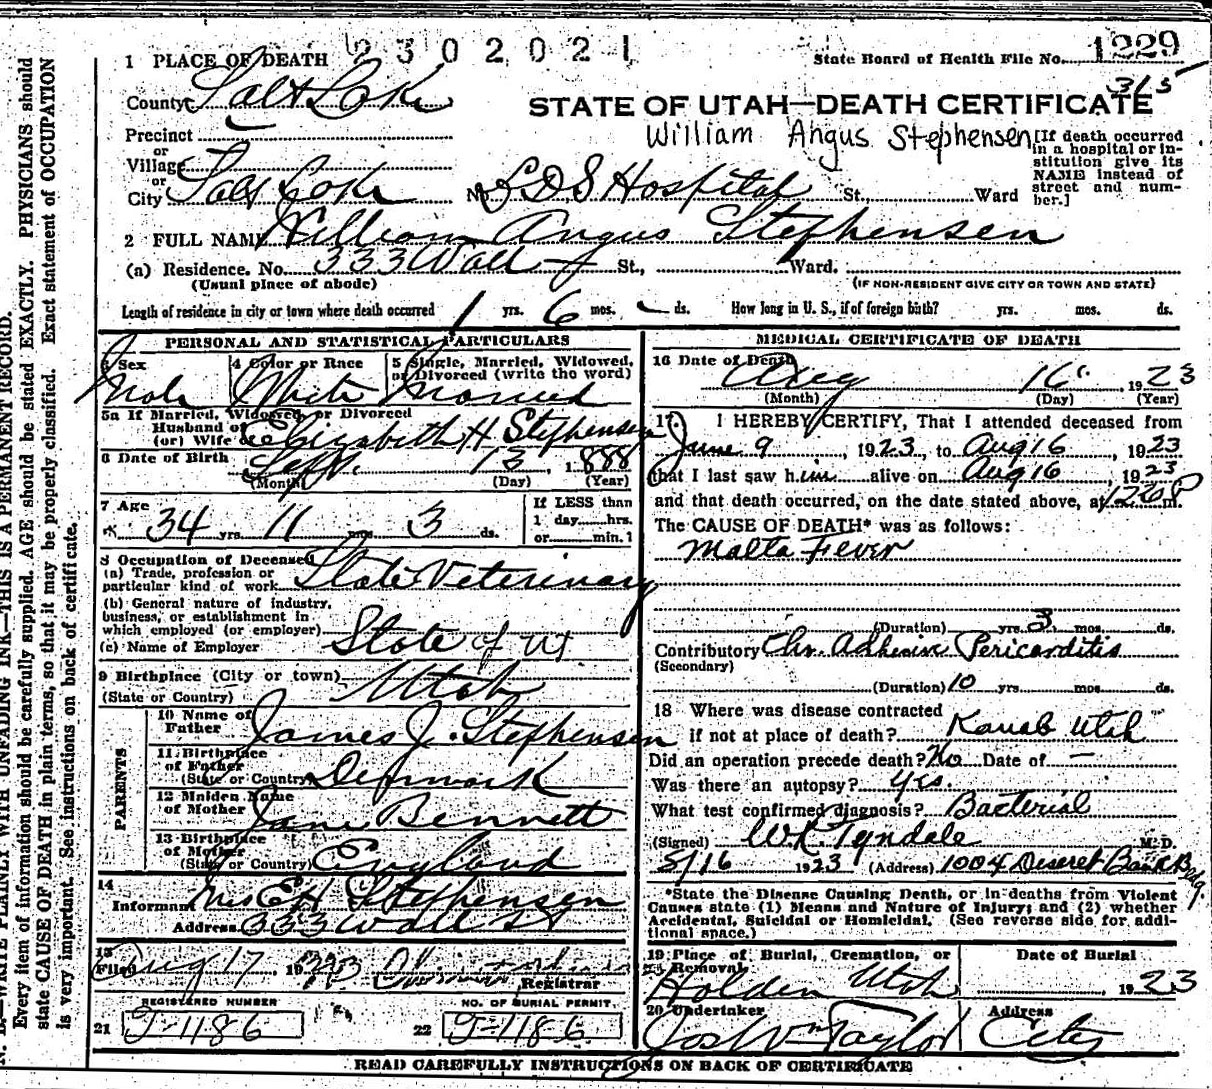 2302021
State Board of Health File No. 1229
315
1 PLACE OF DEATH
County Salt Lake
STATE OF UTAH—DEATH CERTIFICATE
William Angus Stephensen
Precinct
or
Village
or
City Salt Lake No. LDS Hospital St., Ward
[If death occurred
in a hospital or in-
stitution give its
NAME instead of
street and num-
ber.]
2 FULL NAME William Angus Stephensen
(a) Residence. No. 333 Wall St., Ward.
(Usual place of abode) (IF NON-RESIDENT GIVE CITY OR TOWN AND STATE)
Length of residence in city or town where death occurred 1 yrs. 6 mos. - ds. How long in U. S., if of foreign birth? yrs. mos. ds.
PERSONAL AND STATISTICAL PARTICULARS
3 Sex 4 Color or Race 5 Single, Married, Widowed,
or Divorced (write the word)
Male White Married
5a If Married, Widowed, or Divorced
Husband of
(or) Wife of Elizabeth H Stephensen
6 Date of Birth Sept. 13, 1888
(Month) (Day) (Year)
7 Age 34 yrs. 11 mos. 3 ds.
If LESS than
1 day......hrs.
or......min.?
8 Occupation of Deceased
(a) Trade, profession or
particular kind of work State Veterinary
(b) General nature of industry,
business, or establishment in
which employed (or employer)
(c) Name of Employer State of UT
9 Birthplace (City or town)
(State or Country) Utah
PARENTS
10 Name of
Father James J. Stephensen
11 Birthplace
of Father
(State or Country) Denmark
12 Maiden Name
of Mother Jane Bennett
13 Birthplace
of Mother
(State or Country) England
14
Informant Mrs E H Stephensen
Address 333 Wall St
15
Filed Aug 17, 1923
Registrar
REGISTERED NUMBER NO. OF BURIAL PERMIT.
21 J-1186 22 J-1186
MEDICAL CERTIFICATE OF DEATH
16 Date of Death
Aug 16 1923
(Month) (Day) (Year)
17. I HEREBY CERTIFY, That I attended deceased from
June 9, 1923, to Aug 16, 1923
that I last saw him alive on Aug 16, 1923
and that death occurred, on the date stated above, at 1260P m.
The CAUSE OF DEATH* was as follows:
Malta Fever
(Duration) yrs. 3 mos. ds.
Contributory Chr. Adhesive Pericarditis
(Secondary)
(Duration) 10 yrs. mos. ds.
18 Where was disease contracted
if not at place of death? Kanab Utah
Did an operation precede death? No Date of -
Was there an autopsy? yes.
What test confirmed diagnosis? Bacterial
(Signed) W.R. Tyndale M. D.
8/16 1923 (Address) 1004 Deseret Bank Bldg.
*State the Disease Causing Death, or in deaths from Violent
Causes state (1) Means and Nature of Injury; and (2) whether
Accidental, Suicidal or Homicidal. (See reverse side for addi-
tional space.)
19 Place of Burial, Cremation, or
Removal Date of Burial
Holden Utah 1923
20 Undertaker Address
Jos Wm Taylor City
READ CAREFULLY INSTRUCTIONS ON BACK OF CERTIFICATE
N. B.—WRITE PLAINLY WITH UNFADING INK—THIS IS A PERMANENT RECORD.
Every item of information should be carefully supplied. AGE should be stated EXACTLY. PHYSICIANS should
state CAUSE OF DEATH in plain terms, so that it may be properly classified. Exact statement of OCCUPATION
is very important. See instructions on back of certificate.